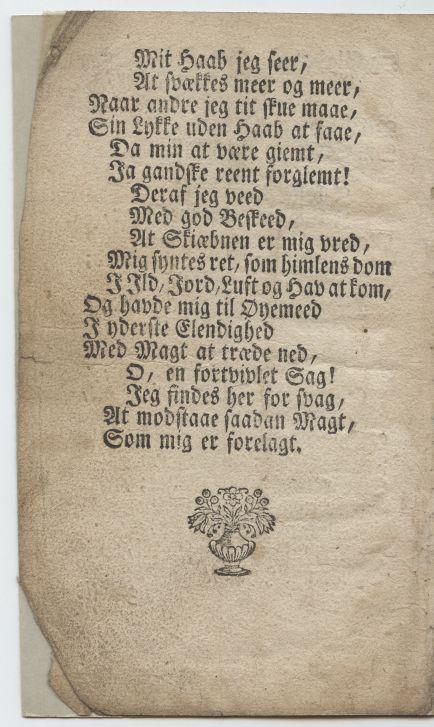 Mit Haab jeg seer,
At svækkes meer og meer,
Naar andre jeg tit skue maae,
Sin Lykke uden Haab at faae,
Da min at være giemt,
Ja gandske reent forglemt!
Deraf jeg veed
Med god Beskeed,
At Skiæbnen er mig vred,
Mig syntes ret, som himlens dom
I Ild, Jord, Luft og Hav at kom,
Og havde mig til Øyemeed
I yderste Elendighed
Med Magt at træde ned,
O, en fortvivlet Sag!
Jeg findes her for svag,
At modstaae saadan Magt,
Som mig er forelagt.